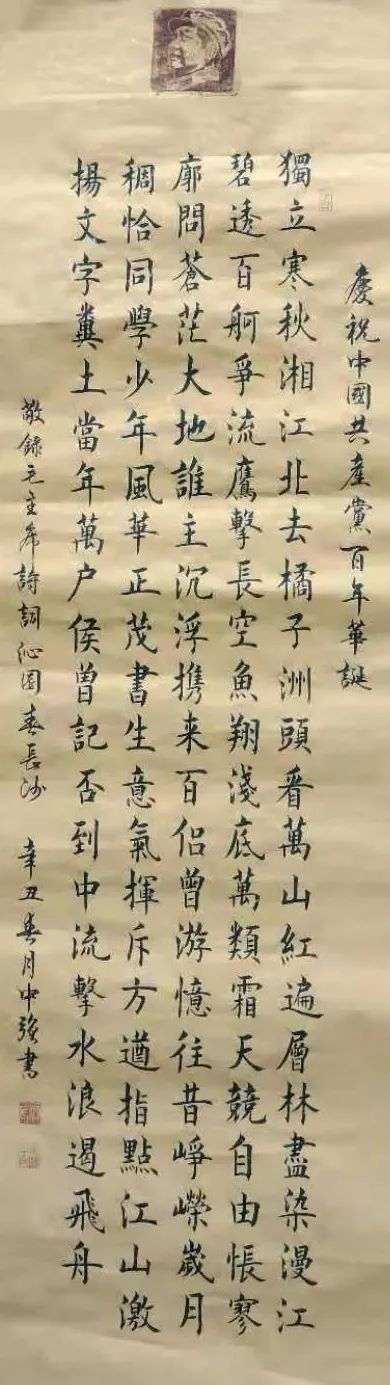 慶祝中國共產黨百年華誕
獨立寒秋湘江北去橘子洲頭看萬山紅遍層林盡染漫江
碧透百舸爭流鷹擊長空魚翔淺底萬類霜天競自由悵寥
廓問蒼茫大地誰主沉浮携来百侣曾游憶往昔崢嶸歲月
稠恰同學少年風華正茂書生意氣揮斥方遒指點江山激
揚文字糞土當年萬户侯曾記否到中流擊水浪遏飛舟
敬録毛主席詩詞沁園春長沙 辛丑春月中強書